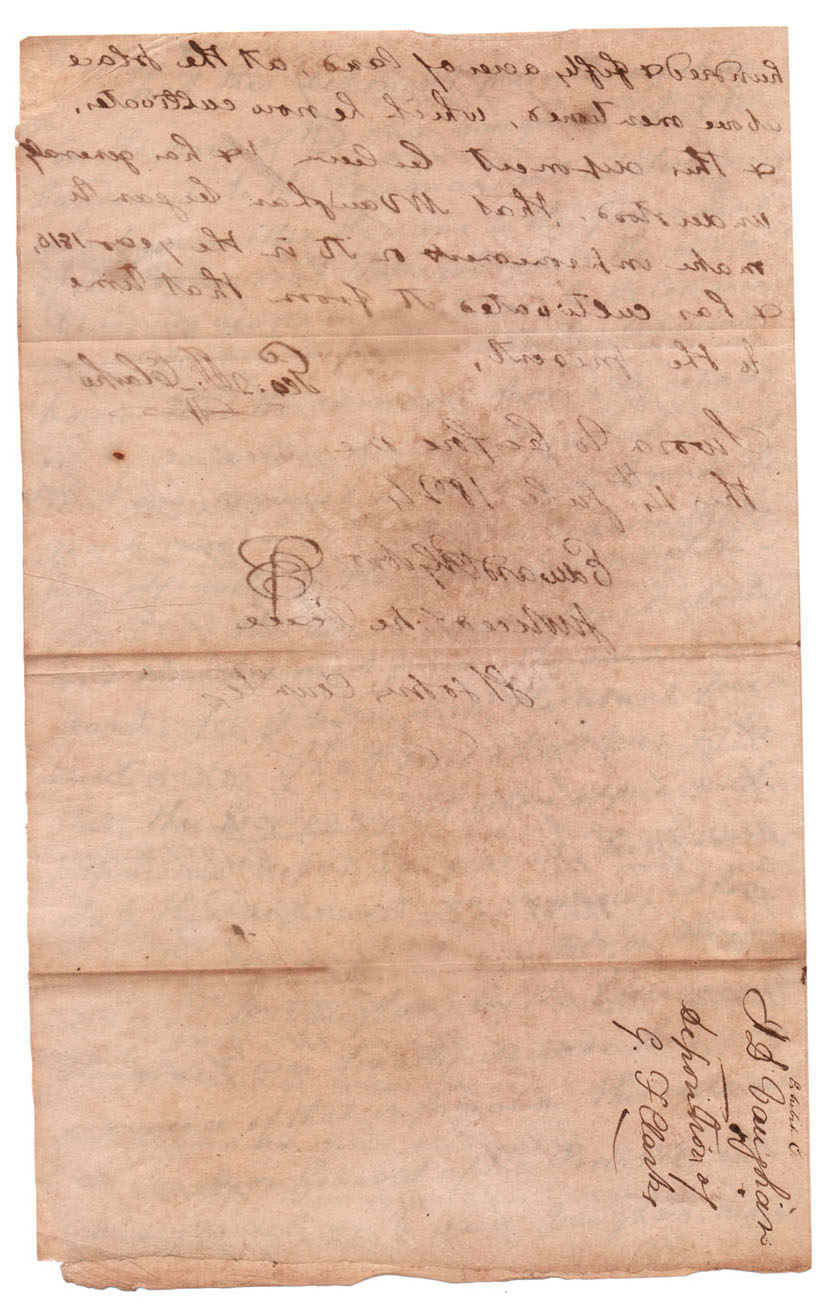 hundred & fifty acres of land, at the place
above mentioned, which he now cultivates,
& this deponent & has generally
understood, that Mr Vaughan began to
make improvements on it in the year 1816,
& has cultivated it from that time
to the present,
Geo. J. F. Clarke
Sworn to before me
this 4th July 1824
Edward R Gibson
Justice of the Peace
St Johns County
Exhibit C.
J D Vaughan
Deposition of
G. F Clarke